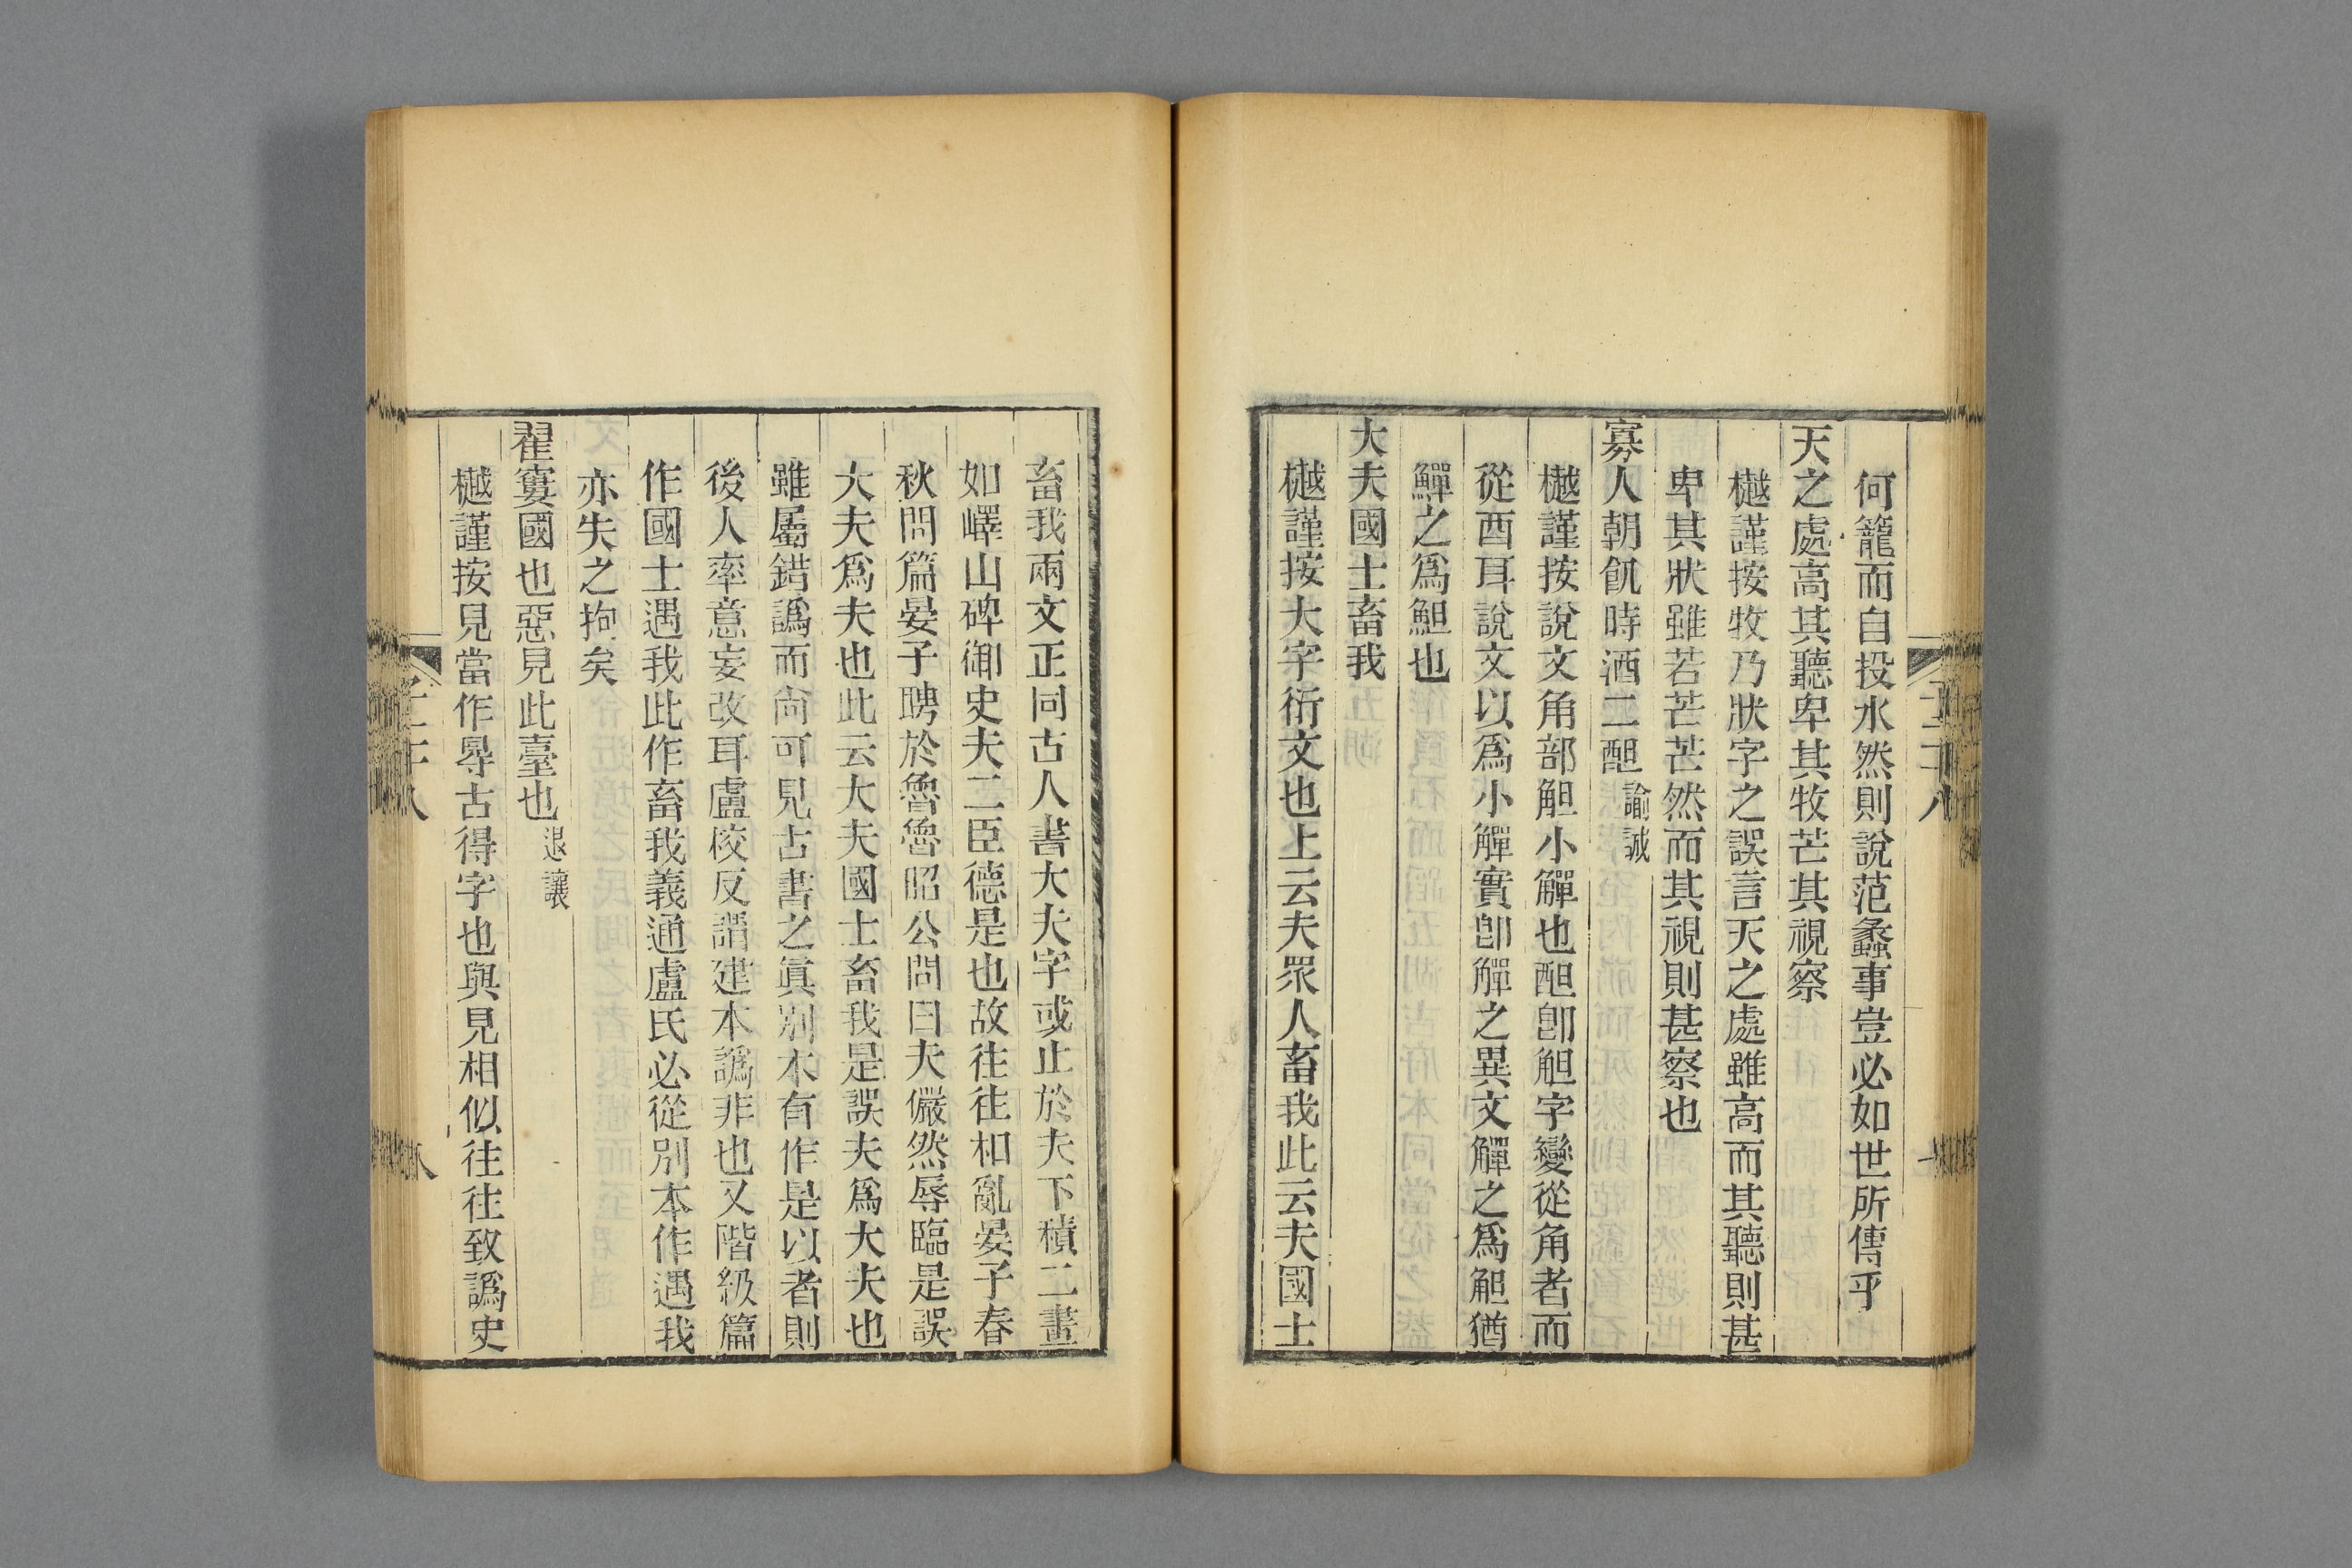 何籠而自投水然則說范蠡事豈必如世所傳乎
天之處高其聽卑其牧芒其視察
樾謹按牧乃狀字之誤言天之處雖高而其聽則甚
卑其狀雖若芒芒然而其視則甚察也
寡人朝飢時酒二䣱諭誠
樾謹按說文角部觛小觶也䣱卽觛字變從角者而
從酉耳說文以爲小觶實卽觶之異文觶之爲觛猶
鱓之爲䱇也
大夫國士畜我
樾謹按大字衍文也上云夫眾人畜我此云夫國士
畜我兩文正同古人書大夫字或止於夫下積二畫
如嶧山碑御史夫二臣德是也故往往相亂晏子春
秋問篇晏子聘於魯魯昭公問曰夫儼然辱臨是誤
大夫爲夫也此云大夫國士畜我是誤夫爲大夫也
雖屬錯譌而尙可見古書之眞別本有作是以者則
後人率意妄改耳盧校反謂建本譌非也又階級篇
作國士遇我此作畜我義通盧氏必從別本作遇我
亦失之拘矣
翟窶國也惡見此臺也退讓
樾謹按見當作㝵古得字也與見相似往往致譌史
二十八
八